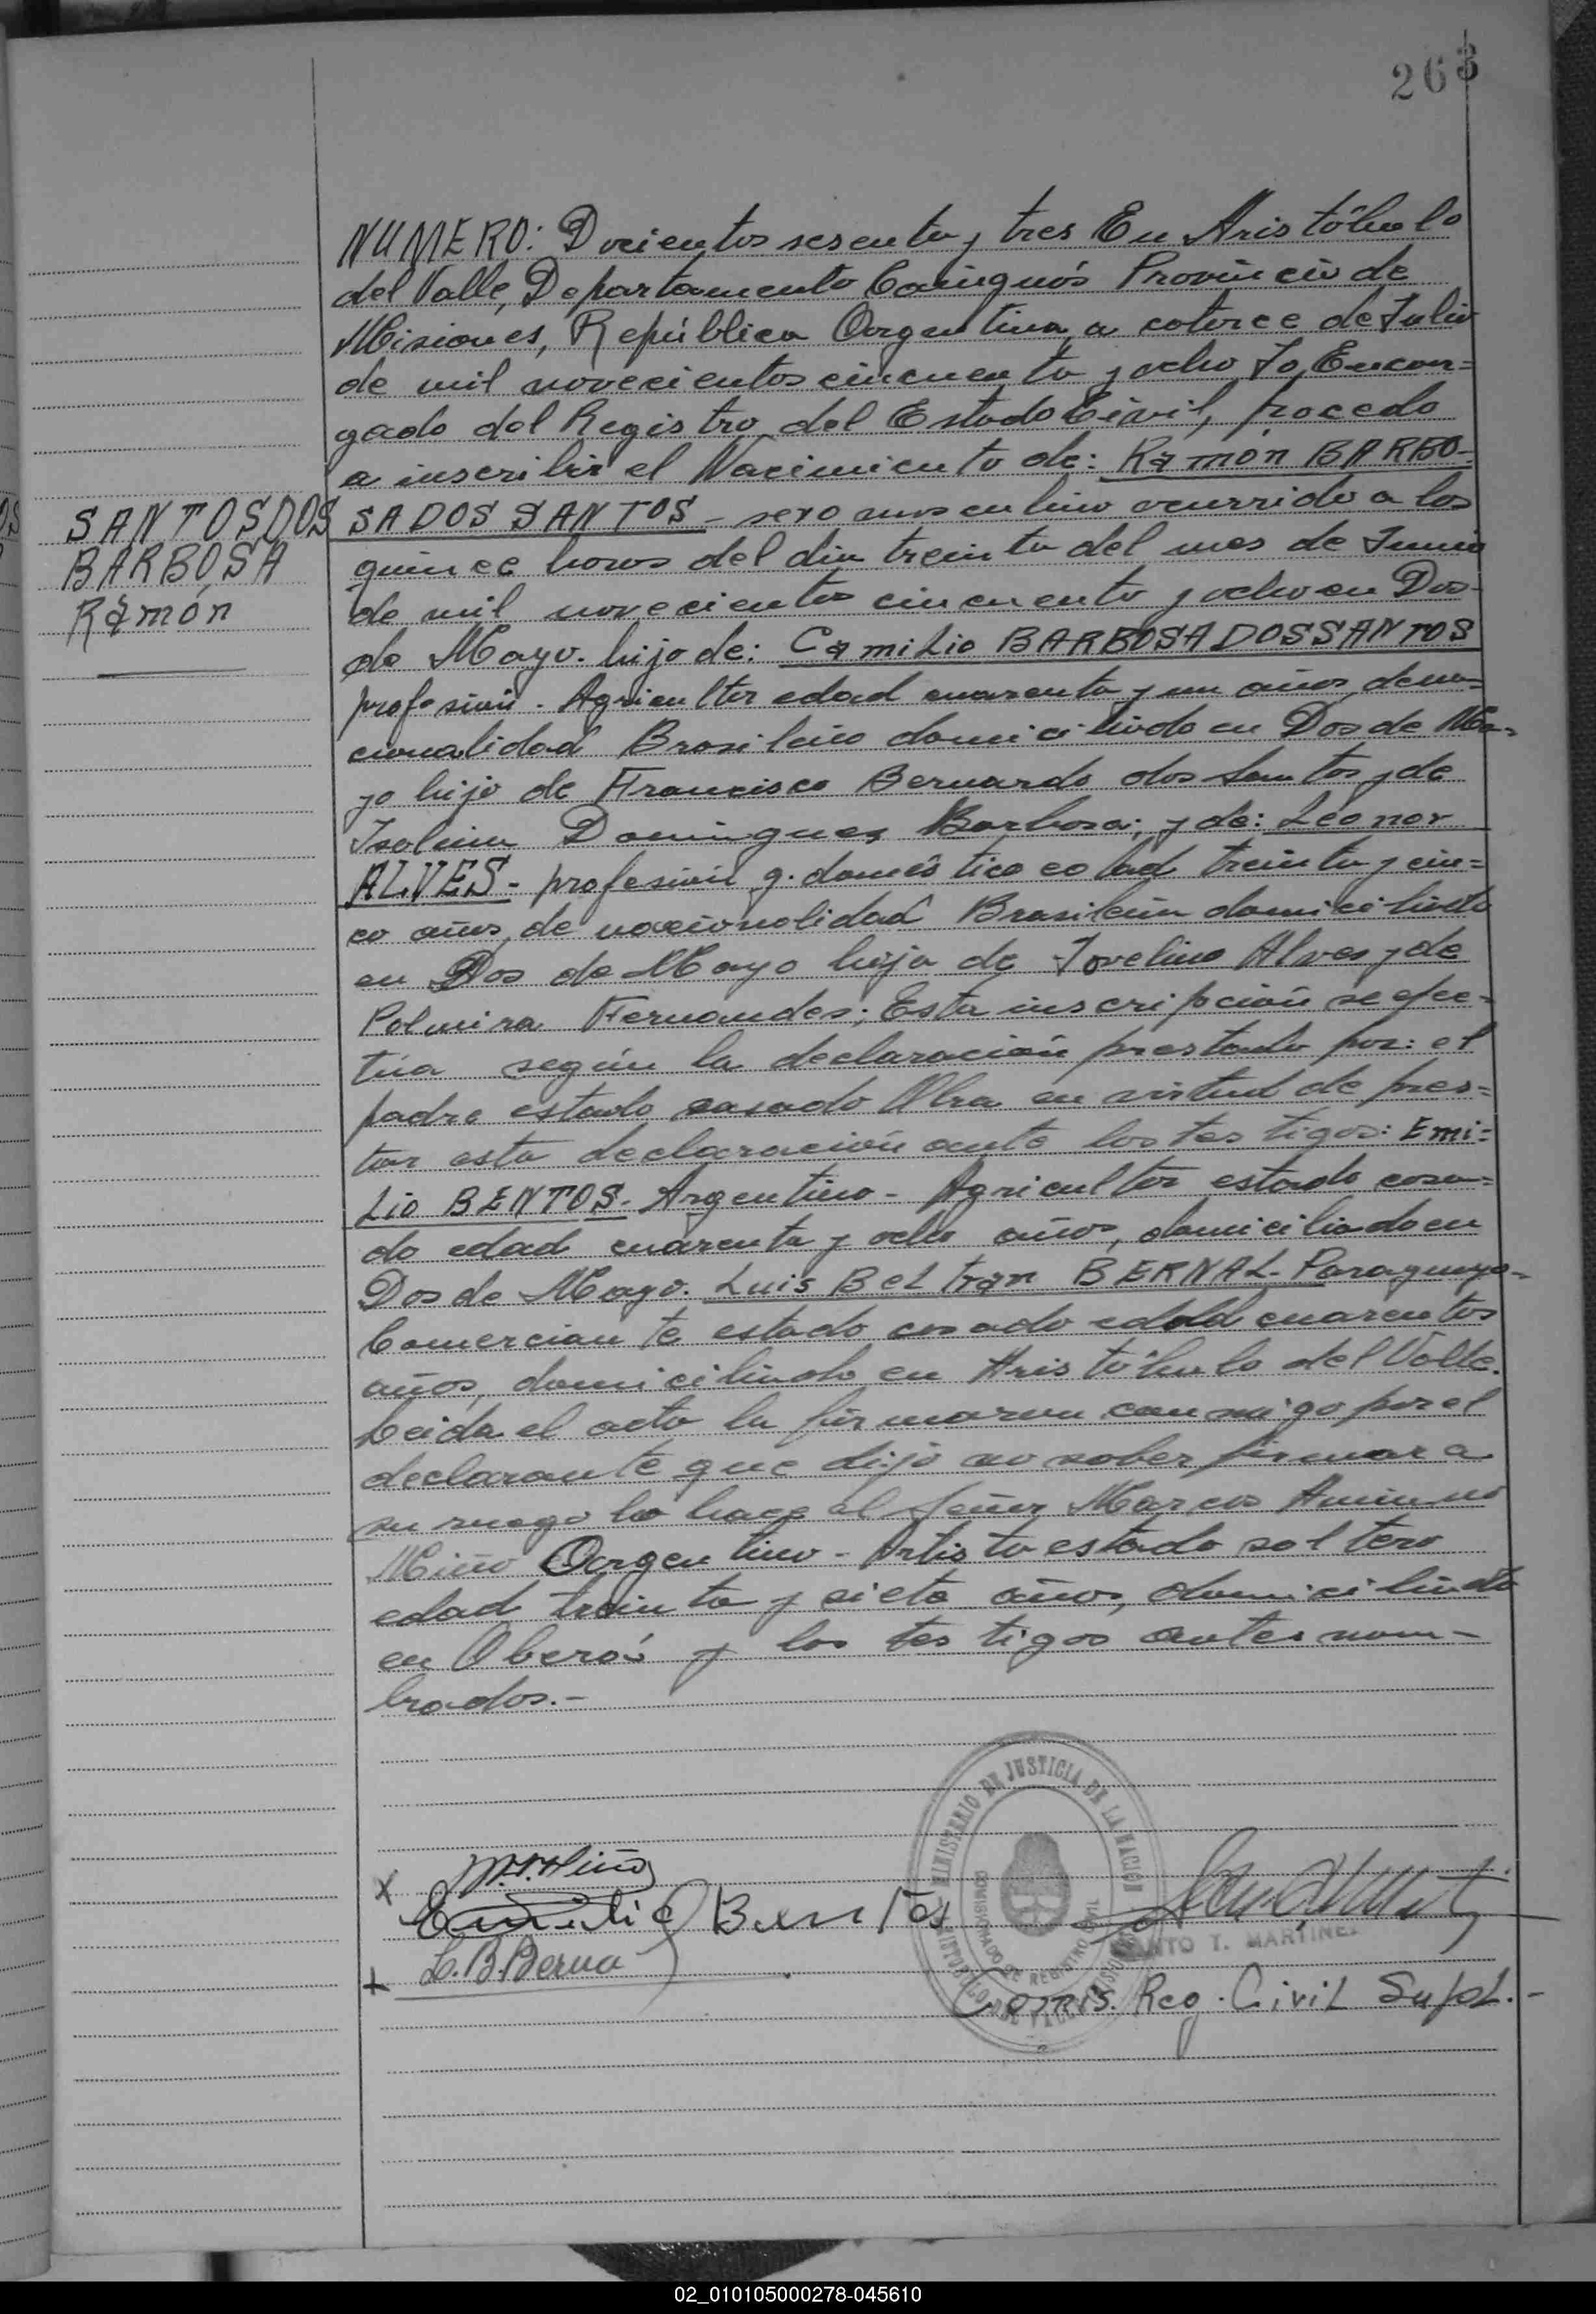 263
NUMERO: Docientos sesenta y tres En Aristóbulo
del Valle, Departamento Cainguás Provincia de
Misiones, República Argentina, a catorce de Julio
de mil novecientos cincuenta y ocho Yo, Encar=
gado del Registro del Estado Civil, procedo
a inscribir el Nacimiento de: Ramón BARBO-
SA DOS SANTOS - sexo masculino ocurrido a las
quince horas del dia treinta del mes de Junio
de mil novecientos cincuenta y ocho en Dos
de Mayo. hijo de: Camilio BARBOSA DOSSANTOS
profesión. Agricultor edad cuarenta y un años, de na=
cionalidad Brasileño domiciliado en Dos de Ma=
yo hijo de Francisco Bernardo dos Santos y de
Isolina Domingues Barbosa; y de: Leonor
ALVES - profesión q. doméstico edad treinta y cin=
co años, de nacionalidad Brasileña domiciliada
en Dos de Mayo hija de Jovelino Alves y de
Polmira Fernandes; Esta inscripción se efec=
túa según la declaración prestada por: el
padre estado casado Obra en virtud de pres=
tar esta declaración ante los testigos: Emi=
Lio BENTOS - Argentino - Agricultor estado casa=
do edad cuarenta y ocho años, domiciliado en
Dos de Mayo. Luis BeLtran BERNAL - Paraguayo-
Comerciante estado casado edad cuarentos
años, domiciliado en Aristóbulo del Valle.
Leida el acta la firmaron conmigo por el
declarante que dijo no saber firmar a
su ruego lo hace el señor Marcos
Miño Argentino - Artista estado soltero
edad treinta y siete años, domiciliado
en Oberá y los testigos antes nom-
brados.-
SANTOS DOS
BARBOSA
Ramón
MINISTERIO DE JUSTICIA DE LA NACION
X M.A. Miño
Emilio Bentos
X L.B. Berna
T. MARTINEZ
Comis. Reg. Civil Supl.-
02_010105000278-045610